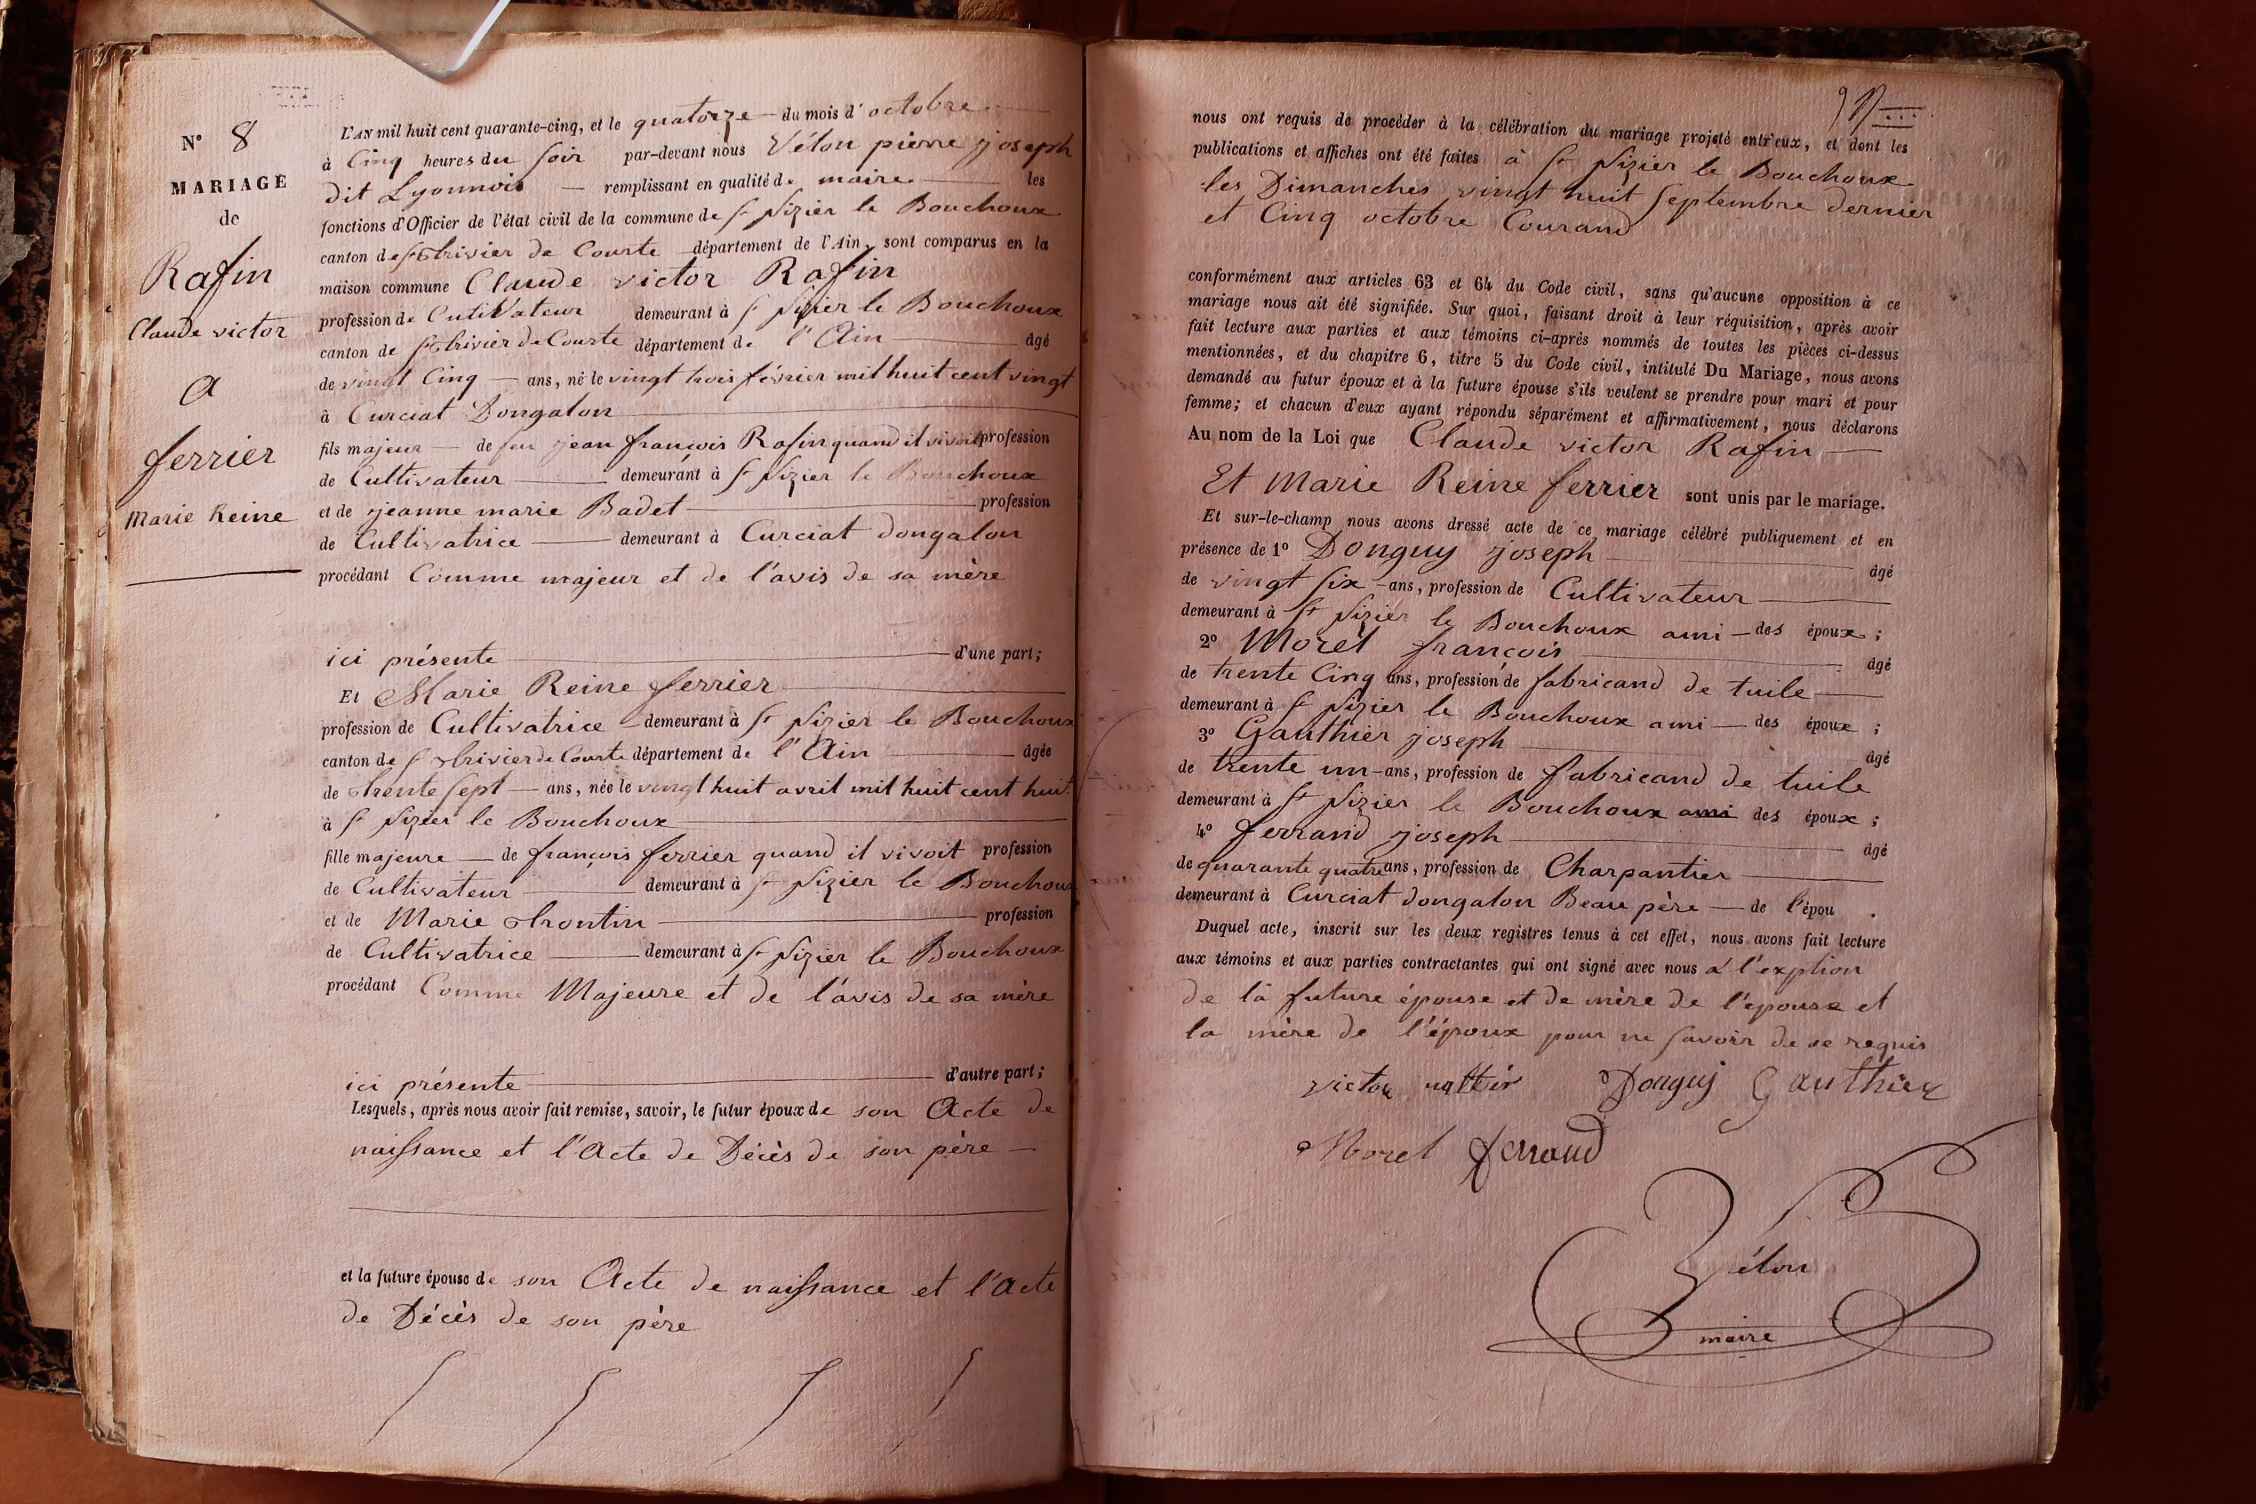 N° 8
MARIAGE
de
Rafin
Claude victor
a
ferrier
Marie Reine
L'AN mil huit cent quarante-cinq, et le quatorze du mois d'octobre
à Cinq heures du soir par-devant nous Vélon pierre joseph
dit Lyonnois remplissant en qualité de maire les
fonctions d'Officier de l'état civil de la commune de St Nizier le Bouchoux
canton de St trivier de Courte département de l'Ain, sont comparus en la
maison commune Claude victor Rafin
profession de Cutivateur demeurant à St Nizier le Bouchoux
canton de St trivier de Courte département de l'Ain âgé
de vingt Cinq ans, né le vingt trois février mil huit cent vingt
à Curciat Dongalon
fils majeur de feu jean françois Rafin quand il vivoit profession
de Cultivateur demeurant à St Nizier le Bouchoux
et de jeanne marie Badet profession
de Cultivatrice demeurant à Curciat dongalon
procédant Comme majeur et de l'avis de sa mère
ici présente d'une part;
Et Marie Reine ferrier
profession de Cultivatrice demeurant à St Nizier le Bouchoux
canton de St trivier de Courte département de l'Ain âgée
de trente sept ans, née le vingt huit avril mil huit cent huit
à St Nizier le Bouchoux
fille majeure de françois ferrier quand il vivoit profession
de Cultivateur demeurant à St Nizier le Bouchoux
et de Marie trontin profession
de Cultivatrice demeurant à St Nizier le Bouchoux
procédant Comme Majeure et de l'avis de sa mère
ici présente d'autre part;
Lesquels, après nous avoir fait remise, savoir, le futur époux de son Acte de
naissance et l'Acte de Décès de son père
et la future épouse de son Acte de naissance et l'Acte
de Décès de son père
nous ont requis de procéder à la célébration du mariage projeté entr'eux, et dont les
publications et affiches ont été faites à St Nizier le Bouchoux
les Dimanches vingt huit Septembre dernier
et Cinq octobre Courand
conformément aux articles 63 et 64 du Code civil, sans qu'aucune opposition à ce
mariage nous ait été signifiée. Sur quoi, faisant droit à leur réquisition, après avoir
fait lecture aux parties et aux témoins ci-après nommés de toutes les pièces ci-dessus
mentionnées, et du chapitre 6, titre 5 du Code civil, intitulé Du Mariage, nous avons
demandé au futur époux et à la future épouse s'ils veulent se prendre pour mari et pour
femme; et chacun d'eux ayant répondu séparément et affirmativement, nous déclarons
Au nom de la Loi que Claude victor Rafin
Et Marie Reine ferrier sont unis par le mariage.
Et sur-le-champ nous avons dressé acte de ce mariage célébré publiquement et en
présence de 1° Donguy joseph âgé
de vingt six ans, profession de Cultivateur
demeurant à St Nizier le Bouchoux ami des époux;
2° Morel françois âgé
de trente Cinq ans, profession de fabricand de tuile
demeurant à St Nizier le Bouchoux ami des époux;
3° Gauthier joseph âgé
de trente un ans, profession de fabricand de tuile
demeurant à St Nizier le Bouchoux ami des époux;
4° ferrand joseph âgé
de quarante quatre ans, profession de Charpantier
demeurant à Curciat dongalon Beau père de l'épou .
Duquel acte, inscrit sur les deux registres tenus à cet effet, nous avons fait lecture
aux témoins et aux parties contractantes qui ont signé avec nous a l'exption
de la future épouse et de mère de l'épouse et
la mère de l'époux pour ne savoir de se requis
victor Donguy Gauthier
Morel ferrand
Vélon
maire